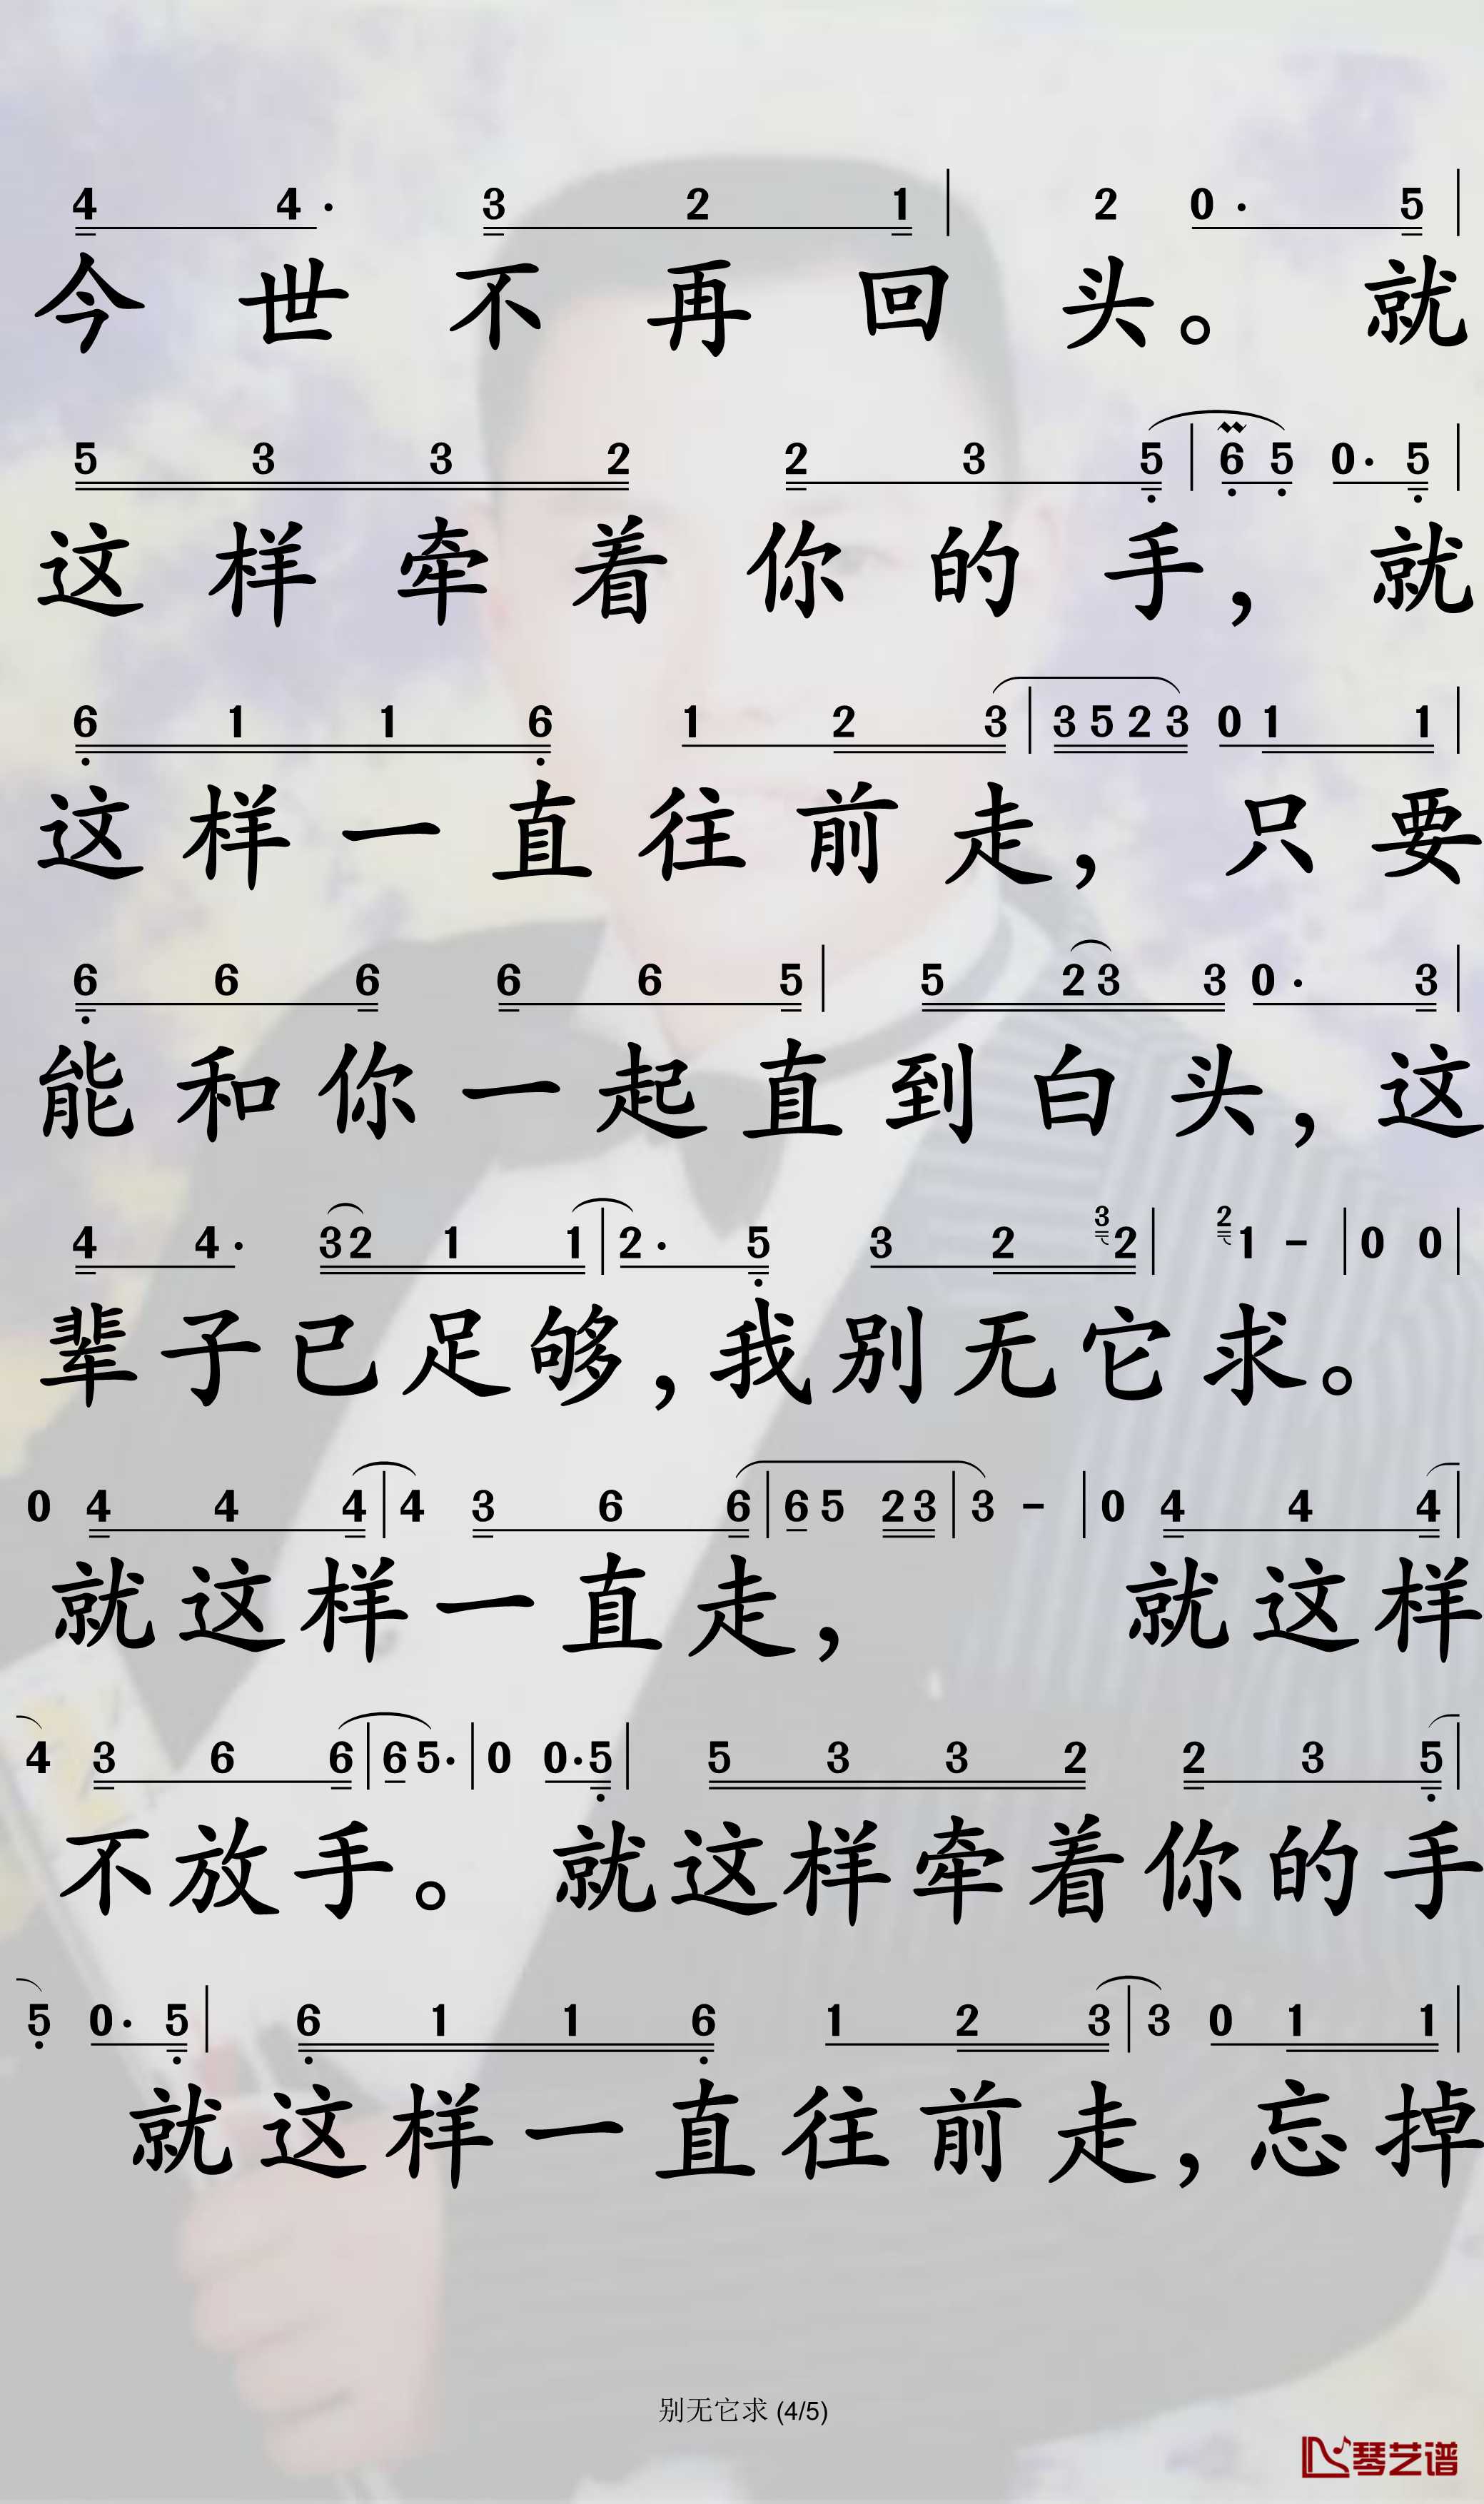 4 4· 3 2 1 | 2 0· 5 |
今世不再回头。就
5 3 3 2 2 3 5 | 6 5 0· 5 |
这样牵着你的手，就
6 1 1 6 1 2 3 | 3 5 2 3 0 1 1 |
这样一直往前走，只要
6 6 6 6 6 5 | 5 2 3 3 0· 3 |
能和你一起直到白头，这
4 4· 3 2 1 1 | 2· 5 3 2 3 2 | 2 1 - | 0 0 |
辈子已足够，我别无它求。
0 4 4 4 | 4 3 6 6 | 6 5 2 3 | 3 - | 0 4 4 4 |
就这样一直走，就这样
4 3 6 6 | 6 5· | 0 0· 5 | 5 3 3 2 2 3 5 |
不放手。就这样牵着你的手
5 0· 5 | 6 1 1 6 1 2 3 | 3 0 1 1 |
就这样一直往前走，忘掉
别无它求 (4/5)
琴艺谱